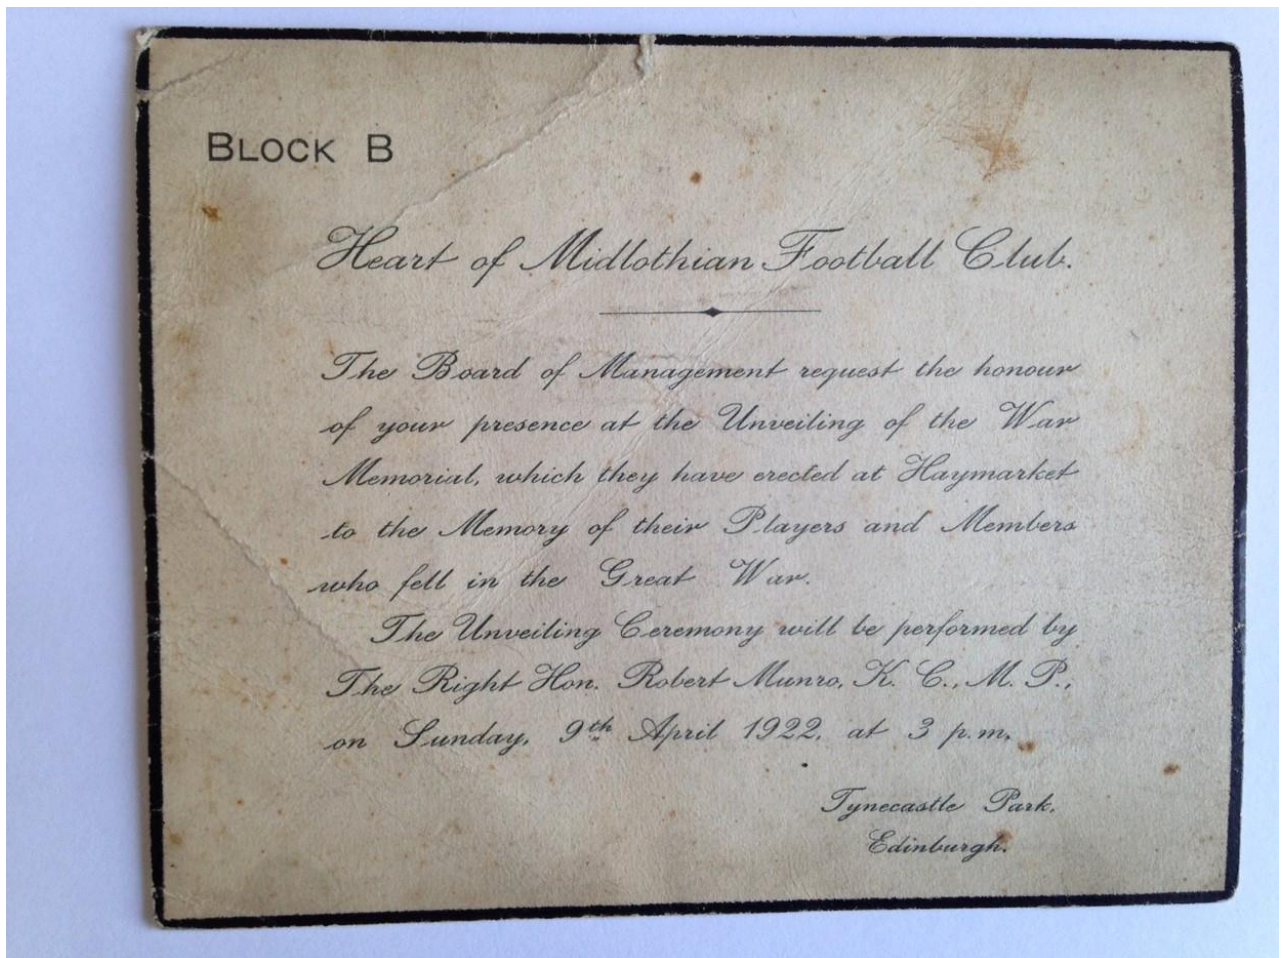 BLOCK B
Heart of Midlothian Football Club.
The Board of Management request the honour
of your presence at the Unveiling of the War
Memorial, which they have erected at Haymarket
to the Memory of their Players and Members
who fell in the Great War.
The Unveiling Ceremony will be performed by
The Right Hon. Robert Munro, K. C., M. P.,
on Sunday, 9th April 1922, at 3 p.m.
Tynecastle Park,
Edinburgh.